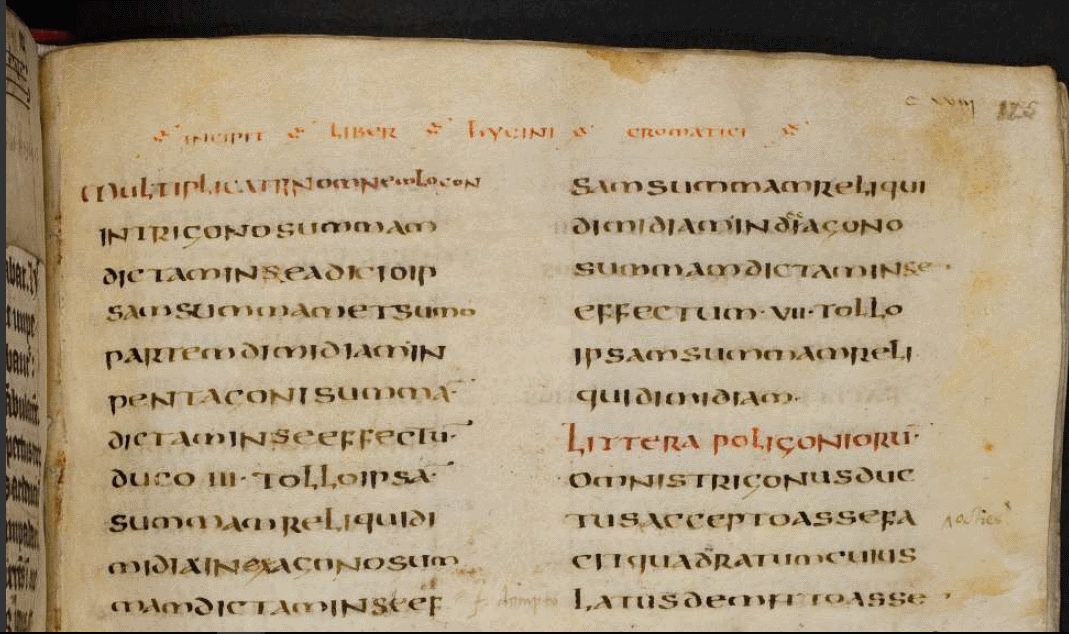 INCIPIT LIBER LYCINI CROMATICI
MULTIPLICATIN OMNEM LOCON
INTRIGONOSUMMAM
DICTAMINSEADICIOIP
SAMSUMMAMETSUMO
PARTEMDIMIDIAMIN
PENTAGONISUMMA̅
DICTAMINSEEFFECTU̅·
DUCO III· TOLLOIPSA̅
SUMMAMRELIQUIDI
MIDIA̅INEXAGONOSUM
MAMDICTAMINSEEF
SAMSUMMAMRELIQUI
DIMIDIAMIN
SUMMAMDICTAMINSE
EFFECTUM·VII·TOLLO
IPSAMSUMMAMRELI
QUIDIMIDIAM·
LITTERA POLIGONIORU̅·
OMNISTRIGONUSDUC
TUSACCEPTOASSEFA
CITQUADRATUMCUIUS
LATUSDEMPTOASSE
125